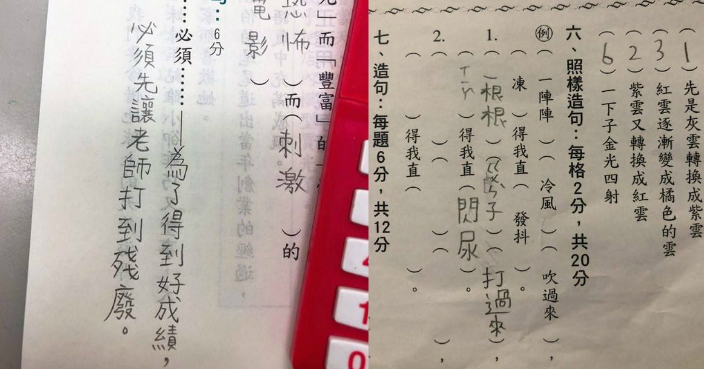 」而「豐富」的
恐怖 ）而（刺激 ）的
電影 ）
：6分
…… 必須……為了得到好成績，
必須先讓老師打到殘廢。
（1）先是灰雲轉成紫雲
（3）紅雲逐漸變成橘色的雲
（2）紫雲又轉換成紅雲
（6）一下子金光四射
六、照樣造句：每格2分，共20分
例（一陣陣）（冷風）（吹過來），
（凍）得我直（發抖）。
1.（根根）（子）（打過來），
（ ）得我直（閃尿）。
2.（ ）（ ）（ ），
（ ）得我直（ ）。
七、造句：每題6分，共12分